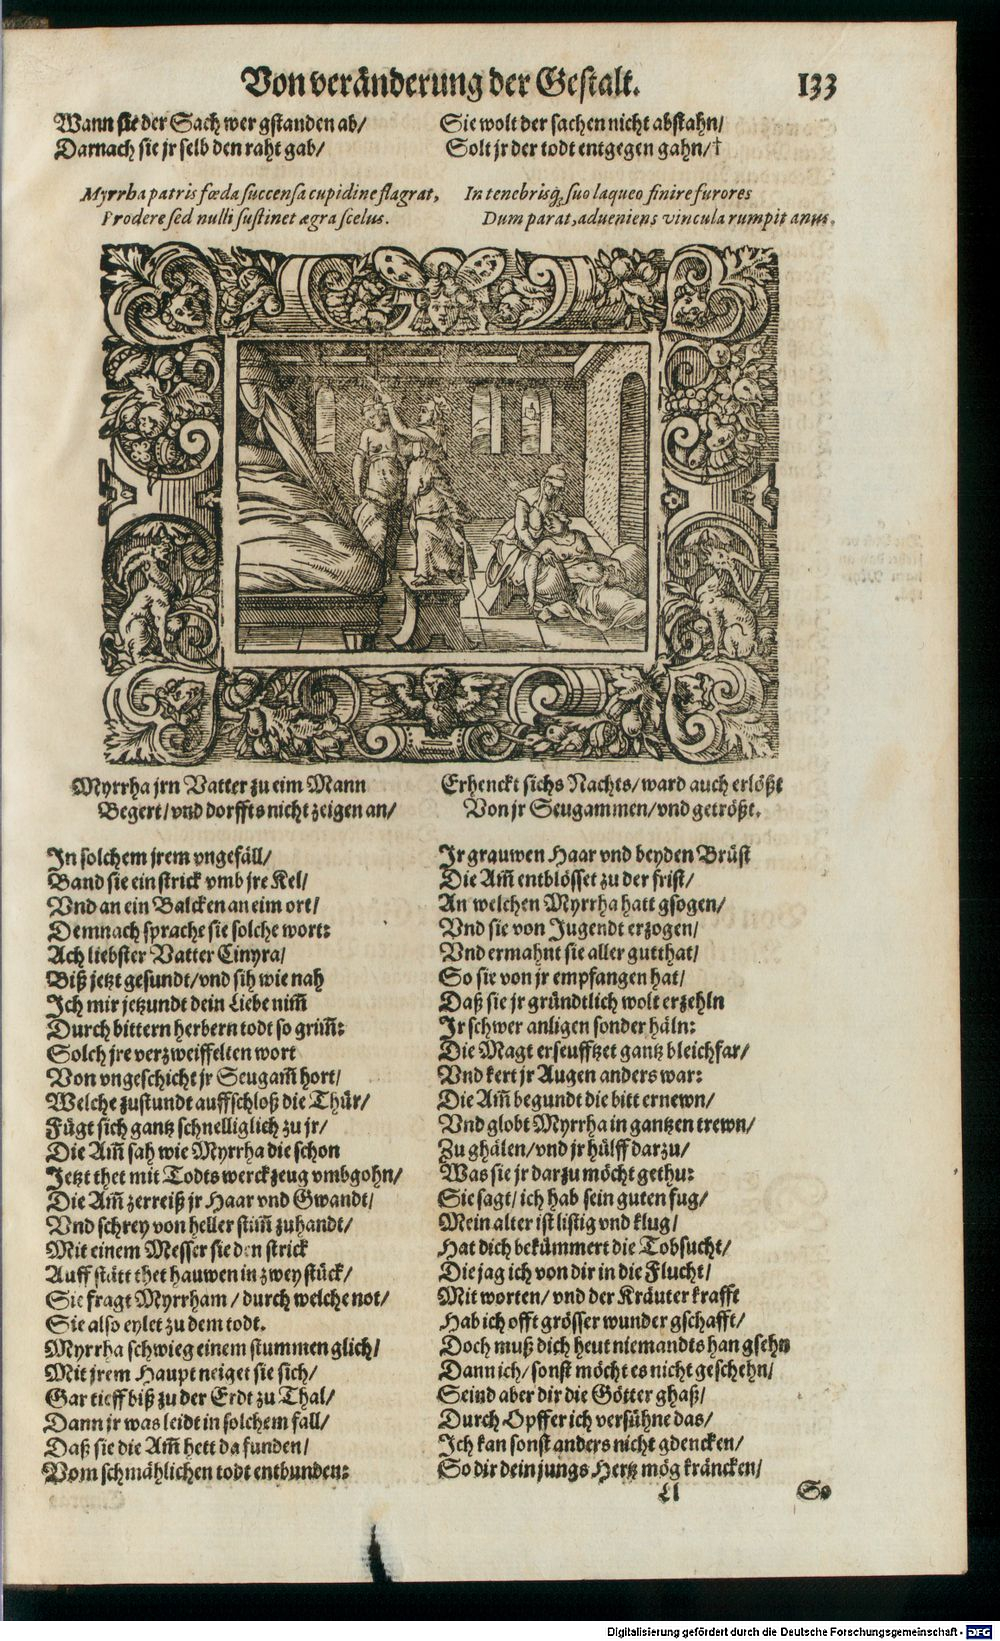 Von veränderung der Gestalt. 133
Wann sie der Sach wer gstanden ab/
Darnach sie jr selb den raht gab/
Sie wolt der sachen nicht abstahn/
Solt jr der todt entgegen gahn/†
Myrrha patris fœda succensa cupidine flagrat,
Prodere sed nulli sustinet ægra scelus.
In tenebrisq; suo laqueo finire furores
Dum parat, adueniens vincula rumpit anus.
Myrrha jrn Vatter zu eim Mann
Begert/vnd dorffts nicht zeigen an/
Erhenckt sichs Nachts/ward auch erlößt
Von jr Seugammen/vnd getrößt.
In solchem jrem vngefäll/
Band sie ein strick vmb jre Kel/
Vnd an ein Balcken an eim ort/
Demnach sprache sie solche wort:
Ach liebster Vatter Cinyra/
Biß jetzt gesundt/vnd sih wie nah
Ich mir jetzundt dein Liebe nim̃
Durch bittern herbern todt so grim̃:
Solch jre verzweiffelten wort
Von vngeschicht jr Seugam̃ hort/
Welche zustundt auffschloß die Thür/
Fügt sich gantz schnelliglich zu jr/
Die Am̃ sah wie Myrrha die schon
Jetzt thet mit Todts werckzeug vmbgohn/
Die Am̃ zerreiß jr Haar vnd Gwandt/
Vnd schrey von heller stim̃ zuhandt/
Mit einem Messer sie den strick
Auff stätt thet hauwen in zwey stück/
Sie fragt Myrrham/durch welche not/
Sie also eylet zu dem todt.
Myrrha schwieg einem stummen glich/
Mit jrem Haupt neiget sie sich/
Gar tieff biß zu der Erdt zu Thal/
Dann jr was leidt in solchem fall/
Daß sie die Am̃ hett da funden/
Vom schmählichen todt entbunden:
Jr grauwen Haar vnd beyden Brüst
Die Am̃ entblösset zu der frist/
An welchen Myrrha hatt gsogen/
Vnd sie von Jugendt erzogen/
Vnd ermahnt sie aller gutthat/
So sie von jr empfangen hat/
Daß sie jr gründtlich wolt erzehln
Jr schwer anligen sonder häln:
Die Magt erseufftzet gantz bleichfar/
Vnd kert jr Augen anderswar:
Die Am̃ begundt die bitt ernewn/
Vnd globt Myrrha in gantzen trewn/
Zu ghälen/vnd jr hülff darzu/
Was sie jr darzu möcht gethu:
Sie sagt/ich hab sein guten fug/
Mein alter ist listig vnd klug/
Hat dich bekümmert die Tobsucht/
Die jag ich von dir in die Flucht/
Mit worten/vnd der Kräuter krafft
Hab ich offt grösser wunder gschafft/
Doch muß dich heut niemandts han gsehn
Dann ich/sonst möcht es nicht geschehn/
Seind aber dir die Götter ghaß/
Durch Opffer ich versühne das/
Ich kan sonst anders nicht gdencken/
So dir dein jungs Hertz mög kräncken/
Ll So
Digitalisierung gefördert durch die Deutsche Forschungsgemeinschaft - DFG